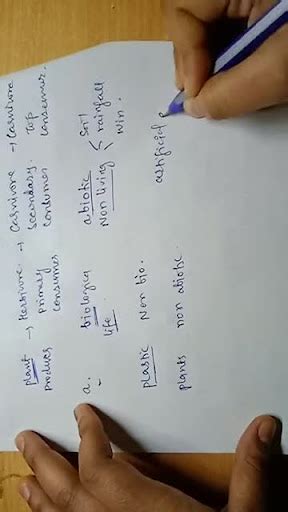 plant → Herbivore → Carnivore → Carnivore
produces primary secondary. Top
consumer condumer consumer.
a. biologica abiotic < Soil
life. Non living rainfall
win.
plastic Non bio.
plants non abiotic. artificial